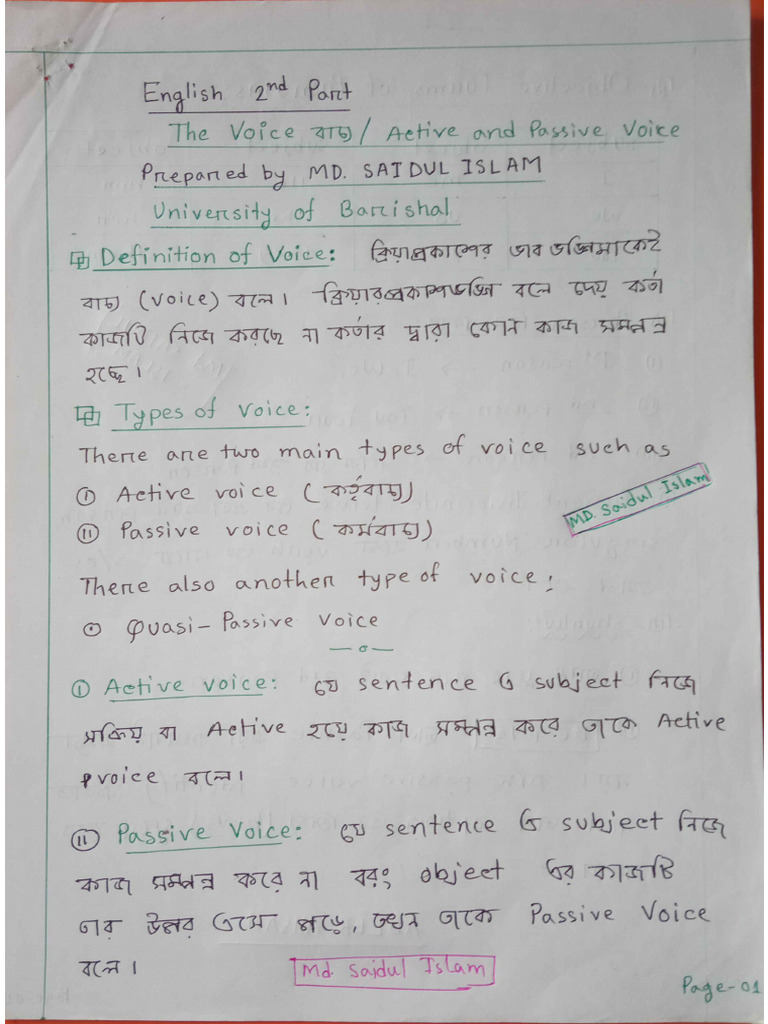 English 2nd Part
The Voice বাচ্য / Active and Passive Voice
Prepared by MD. SAIDUL ISLAM
University of Barishal
Definition of Voice: ক্রিয়াপ্রকাশের ভাব ভঙ্গিমাকেই
বাচ্য (voice) বলে। ক্রিয়ারপ্রকাশভঙ্গি বলে দেয় কর্তা
কাজটি নিজে করছে না কর্তার দ্বারা কোন কাজ সম্পন্ন
হচ্ছে।
Types of voice:
There are two main types of voice such as
(i) Active voice (কর্তৃবাচ্য)
MD. Saidul Islam
(ii) Passive voice (কর্মবাচ্য)
There also another type of voice:
⊙ Quasi-Passive voice
(i) Active voice: যে sentence এ subject নিজে
সক্রিয় বা Active হয়ে কাজ সম্পন্ন করে তাকে Active
voice বলে।
(ii) Passive Voice: যে sentence এ subject নিজে
কাজ সম্পন্ন করে না বরং object এর কাজটি
তার উপর এসে পড়ে, তখন তাকে Passive Voice
বলে।
Md. Saidul Islam
Page-01